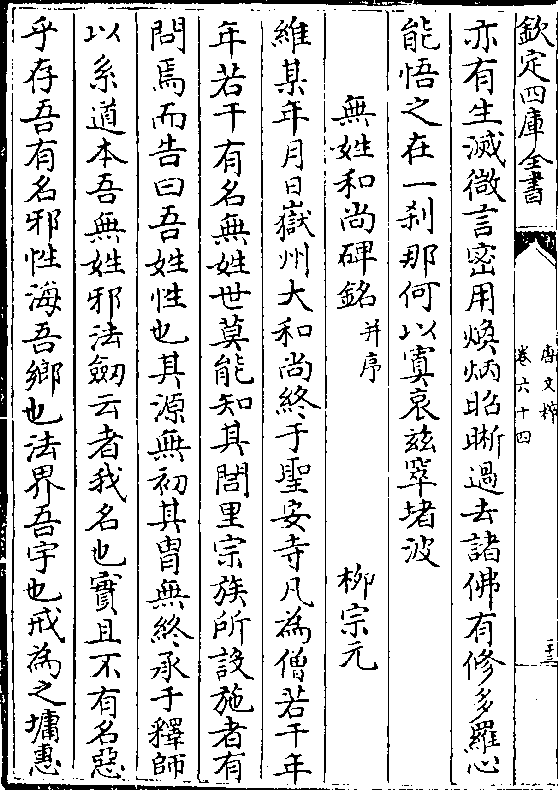 欽定四庫全書
唐文粹
卷六十四
亦有生滅微言密用煥炳昭晰過去諸佛有修多羅心
能悟之在一刹那何以寘哀兹窣堵波
無姓和尚碑銘并序 柳宗元
維某年月日嶽州大和尚終于聖安寺凡為僧若干年
年若干有名無姓世莫能知其閭里宗族所設施者有
問焉而告曰吾姓性也其源無初其胄無終承于釋師
以系道本吾無姓邪法劒云者我名也實且不有名惡
乎存吾有名邪性海吾鄉也法界吾宇也戒為之墉惠